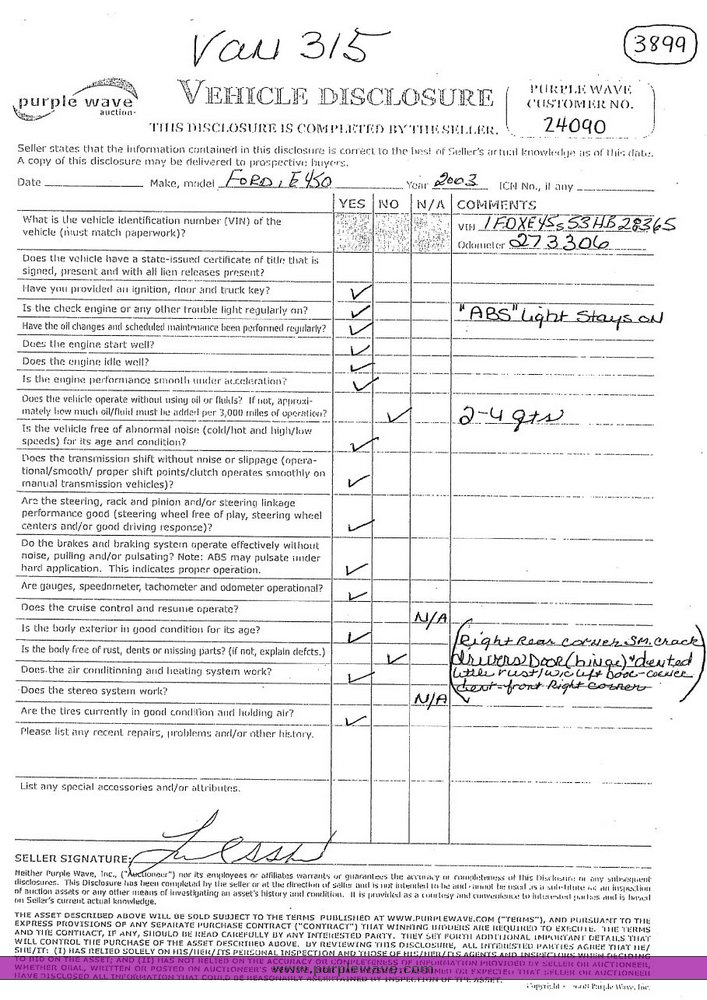 Van 315
3899
purple wave
auction
VEHICLE DISCLOSURE
PURPLE WAVE
CUSTOMER NO.
24090
THIS DISCLOSURE IS COMPLETED BY THE SELLER.
Seller states that the information contained in this disclosure is correct to the best of Seller's actual knowledge as of this date.
A copy of this disclosure may be delivered to prospective buyers.
Date Make, model FORD, E450 Year 2003 ICN No., if any
YES NO N/A COMMENTS
What is the vehicle identification number (VIN) of the VIN 1FDXE45S53HB28365
vehicle (must match paperwork)? Odometer 273306
Does the vehicle have a state-issued certificate of title that is
signed, present and with all lien releases present?
Have you provided an ignition, door and truck key? ✓
Is the check engine or any other trouble light regularly on? ✓ "ABS" light stays on
Have the oil changes and scheduled maintenance been performed regularly? ✓
Does the engine start well? ✓
Does the engine idle well? ✓
Is the engine performance smooth under acceleration? ✓
Does the vehicle operate without using oil or fluids? If not, approxi-
mately how much oil/fluid must be added per 3,000 miles of operation? ✓ 2-4 qts
Is the vehicle free of abnormal noise (cold/hot and high/low
speeds) for its age and condition? ✓
Does the transmission shift without noise or slippage (opera-
tional/smooth/ proper shift points/clutch operates smoothly on
manual transmission vehicles)? ✓
Are the steering, rack and pinion and/or steering linkage
performance good (steering wheel free of play, steering wheel
centers and/or good driving response)? ✓
Do the brakes and braking system operate effectively without
noise, pulling and/or pulsating? Note: ABS may pulsate under
hard application. This indicates proper operation. ✓
Are gauges, speedometer, tachometer and odometer operational? ✓
Does the cruise control and resume operate? N/A
Is the body exterior in good condition for its age? ✓ Right Rear corner SM. crack
Is the body free of rust, dents or missing parts? (if not, explain defcts.) ✓ drivers Door (hinge) dented
Does the air conditioning and heating system work? ✓ little rust/ w/c lift Door-corner
Does the stereo system work? N/A dent-front Right corner
Are the tires currently in good condition and holding air? ✓
Please list any recent repairs, problems and/or other history.
List any special accessories and/or attributes.
SELLER SIGNATURE:
Neither Purple Wave, Inc., ("Auctioneer") nor its employees or affiliates warrants or guarantees the accuracy or completeness of this Disclosure or any subsequent
disclosures. This Disclosure has been completed by the seller or at the direction of seller and is not intended to be and cannot be used as a substitute as an inspection
of auction assets or any other means of investigating an asset's history and condition. It is provided as a courtesy and convenience to interested parties and is based
on Seller's current actual knowledge.
THE ASSET DESCRIBED ABOVE WILL BE SOLD SUBJECT TO THE TERMS PUBLISHED AT WWW.PURPLEWAVE.COM ("TERMS"), AND PURSUANT TO THE
EXPRESS PROVISIONS OF ANY SEPARATE PURCHASE CONTRACT ("CONTRACT") THAT WINNING BIDDERS ARE REQUIRED TO EXECUTE. THE TERMS
AND THE CONTRACT, IF ANY, SHOULD BE READ CAREFULLY BY ANY INTERESTED PARTY. THEY SET FORTH ADDITIONAL IMPORTANT DETAILS THAT
WILL CONTROL THE PURCHASE OF THE ASSET DESCRIBED ABOVE. BY REVIEWING THIS DISCLOSURE, ALL INTERESTED PARTIES AGREE THAT HE/
SHE/IT: (I) HAS RELIED SOLELY ON HIS/HER/ITS PERSONAL INSPECTION AND THOSE OF HIS/HER/ITS AGENTS AND INSPECTORS WHEN DECIDING
TO BID ON THE ASSET; AND (II) HAS NOT RELIED ON THE ACCURACY OR COMPLETENESS OF INFORMATION PROVIDED BY SELLER OR AUCTIONEER,
WHETHER ORAL, WRITTEN OR POSTED ON AUCTIONEER'S
www.purplewave.com
HAVE DISCLOSED ALL INFORMATION THAT COULD BE REASONABLY ASCERTAINED BY INSPECTION OF THE ASSET.
Copyright 2008 Purple Wave, Inc.